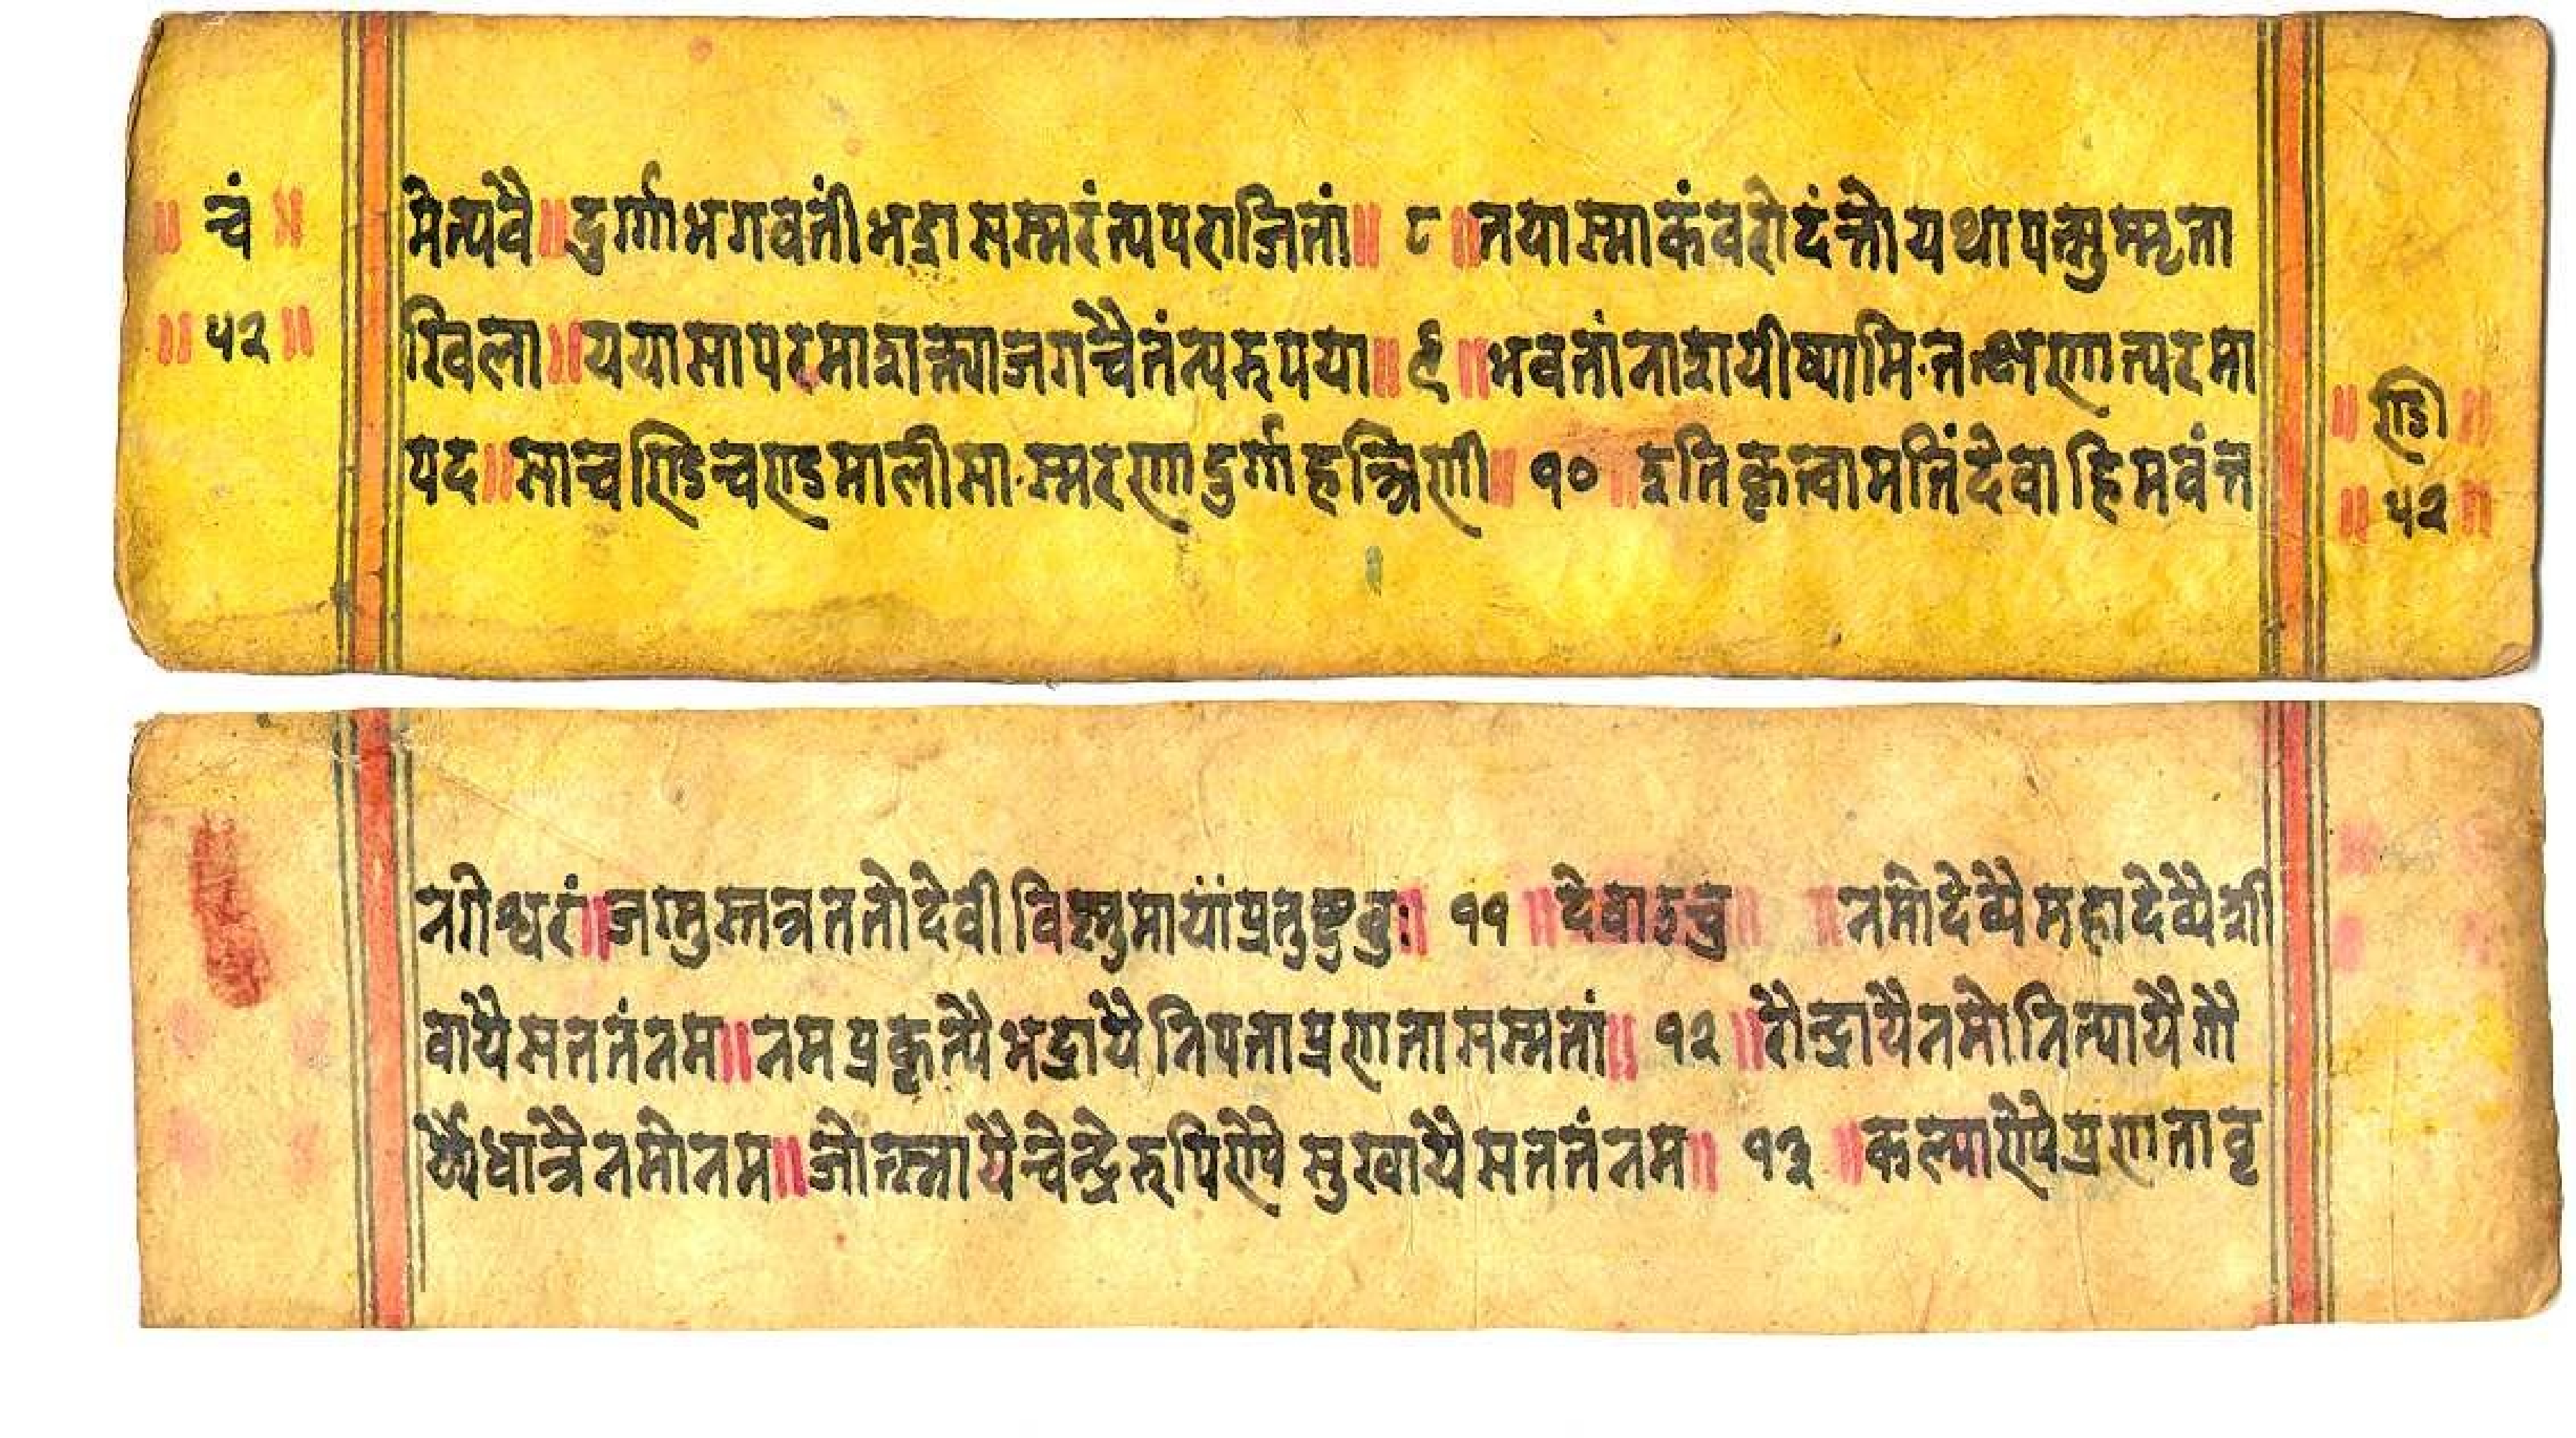 ॥ चं ॥
॥ ५२ ॥
मेत्यवै॥दुर्गाभगवतींभद्रासस्मरंत्यपराजितां॥ ८ ॥तयास्माकंवरोदंत्तोयथापत्सुस्मृता
खिला॥ययामापदमाशक्त्याजगच्चैतंत्यरुपया॥ ९ ॥भवतांनाशयीष्यामि॰तत्क्षणात्परमा
पद॥माचण्डिचण्डमालीमा॰स्मरणादुर्गाहन्त्रिणी॥ १० ॥इतिकृत्वामतिंदेवाहिमवंन्त
॥ ण्डि ॥
॥ ५२ ॥
नगेश्वरं॥जग्मुस्तत्रततोदेवीविष्नुमायांप्रतुष्टुवु॥ ११ ॥देवाऊचु॥ ॥नमोदेव्यैमहादेव्यैशी
वायैसततंनम॥नमप्रकृत्यैभद्रायैनियताप्रणातासस्मतां॥ १२ ॥रौन्द्रायैनमोनित्यायैगौ
र्य्यैधात्रैनमोनम॥जोत्स्नायैचेन्द्रेरुपिणेये सुखायैसततंनम॥ १३ ॥कल्याणेयेप्रणातावृ